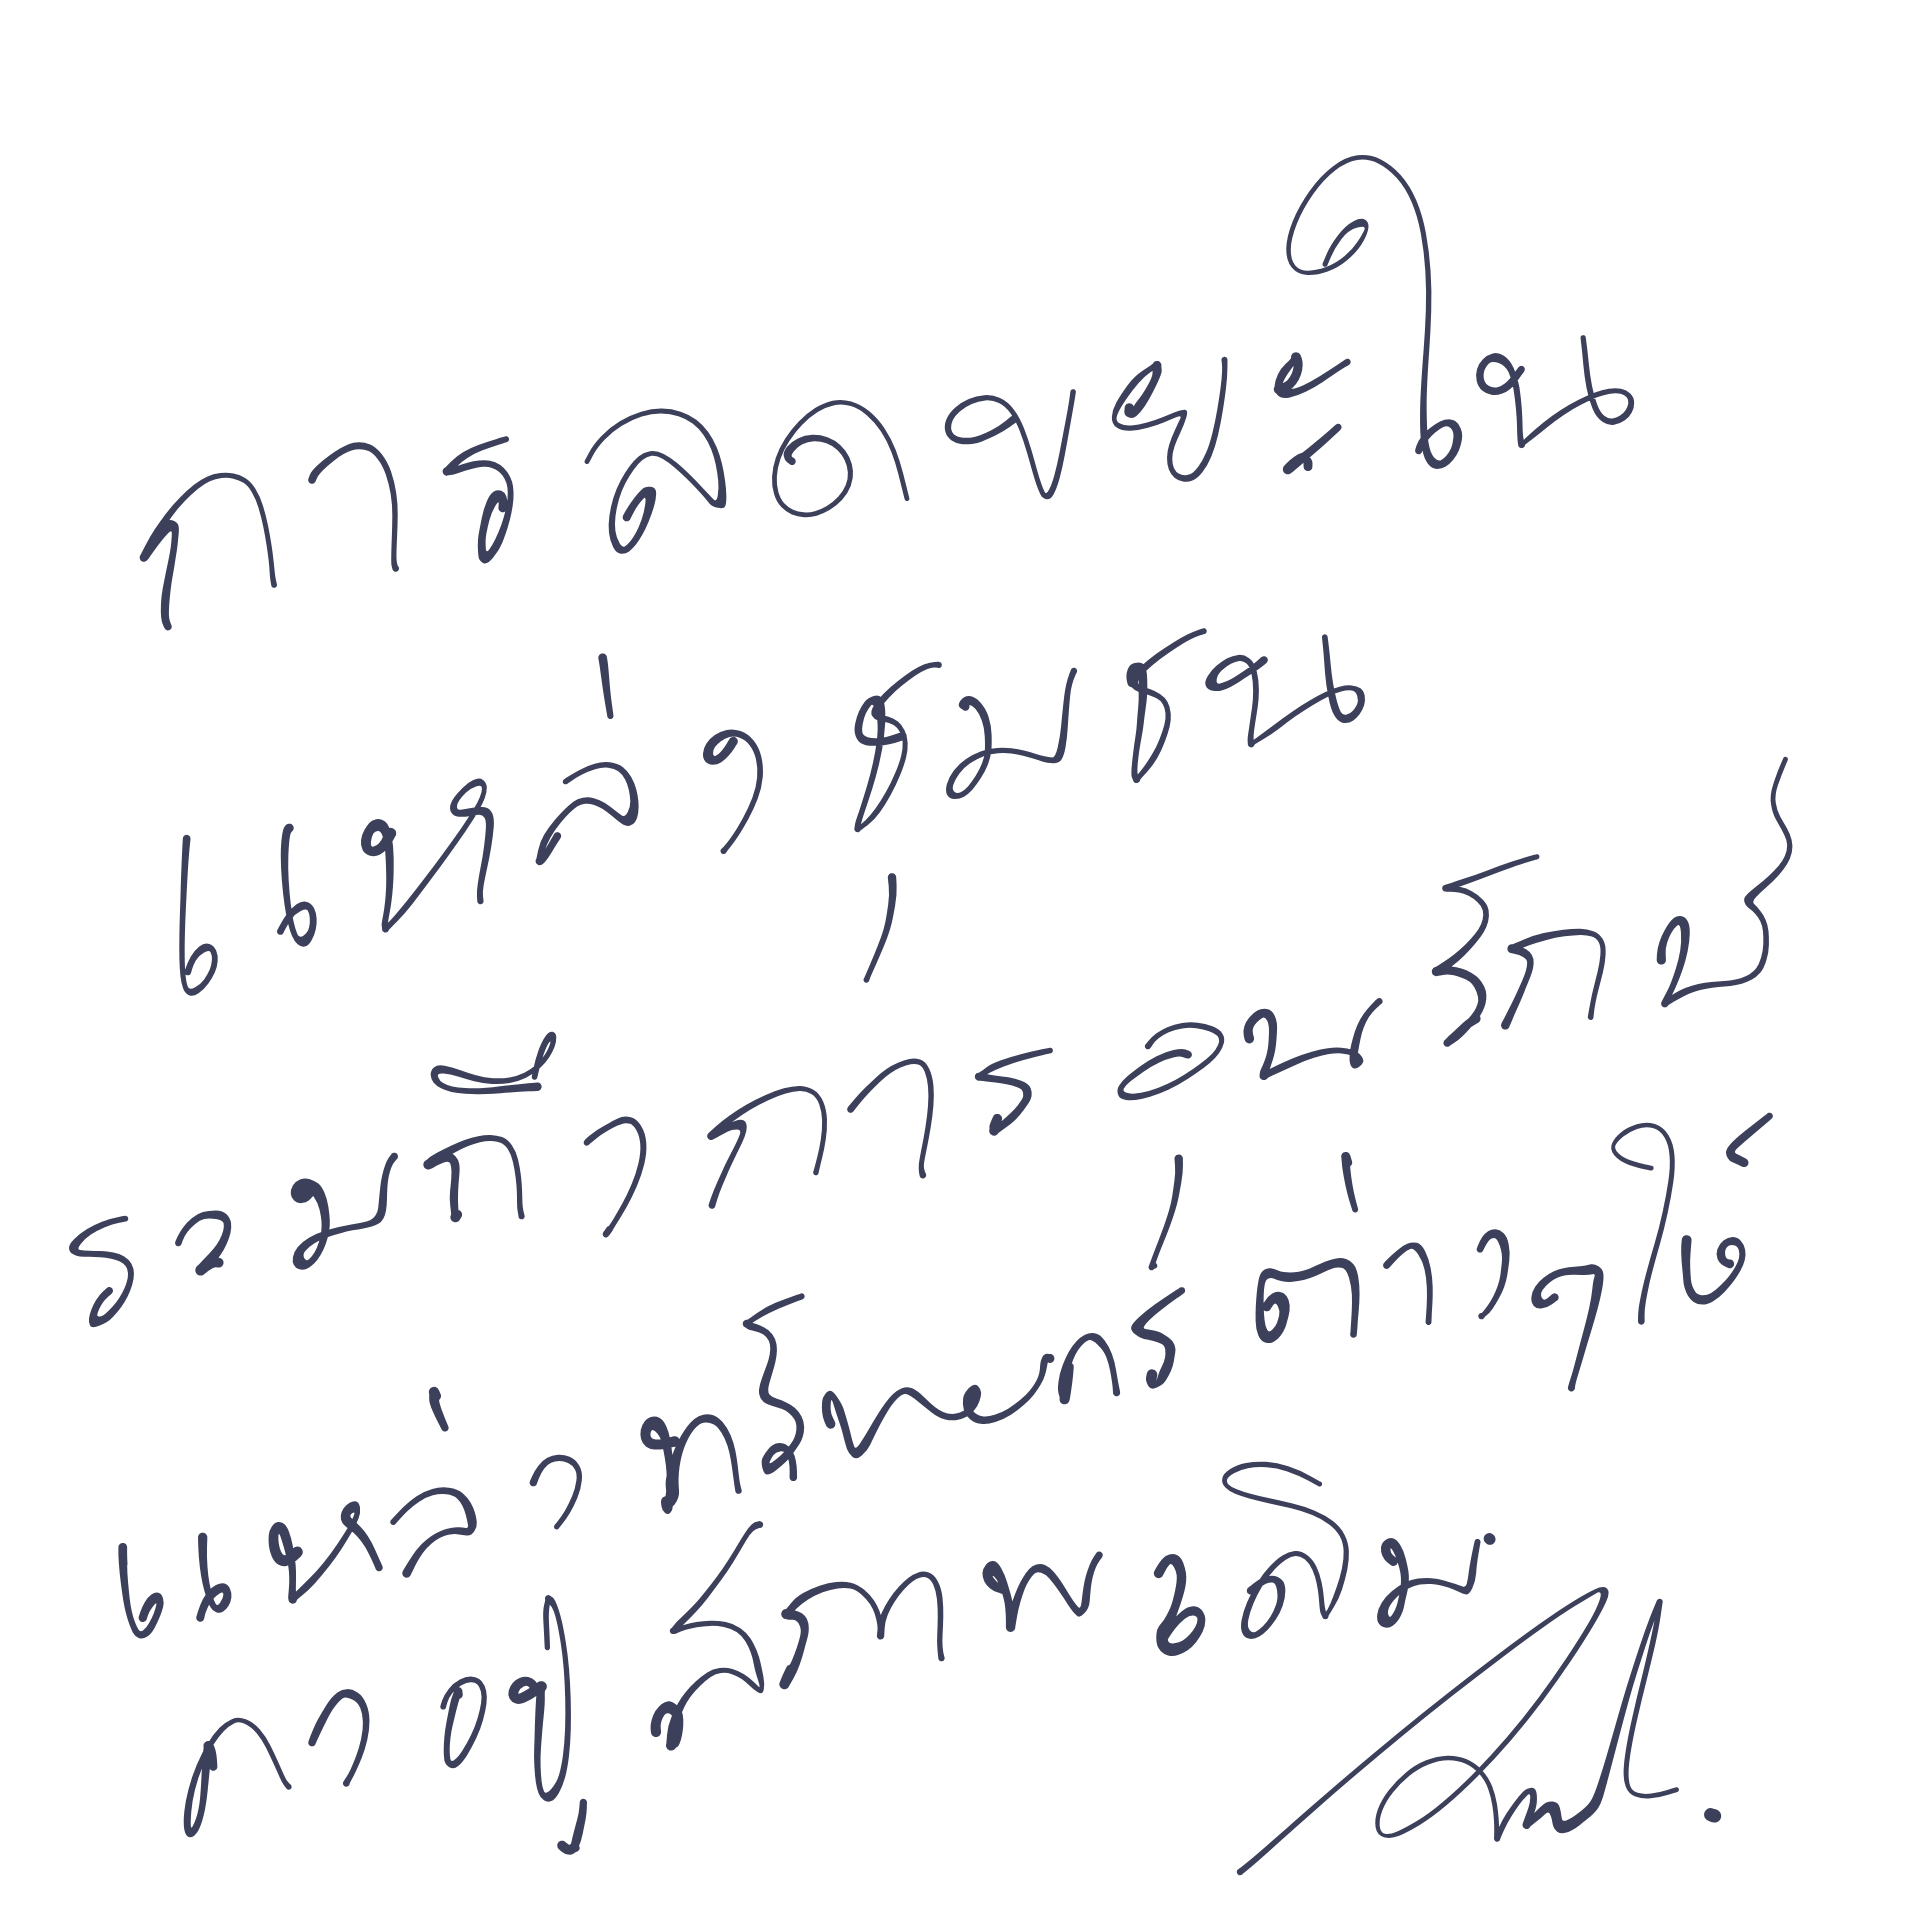 การลดขยะใน
แหล่งชุมชน
รวมทั้งการอนุรักษ์
แหล่งทรัพยากรต่างๆให้
คงอยู่สภาพเดิม